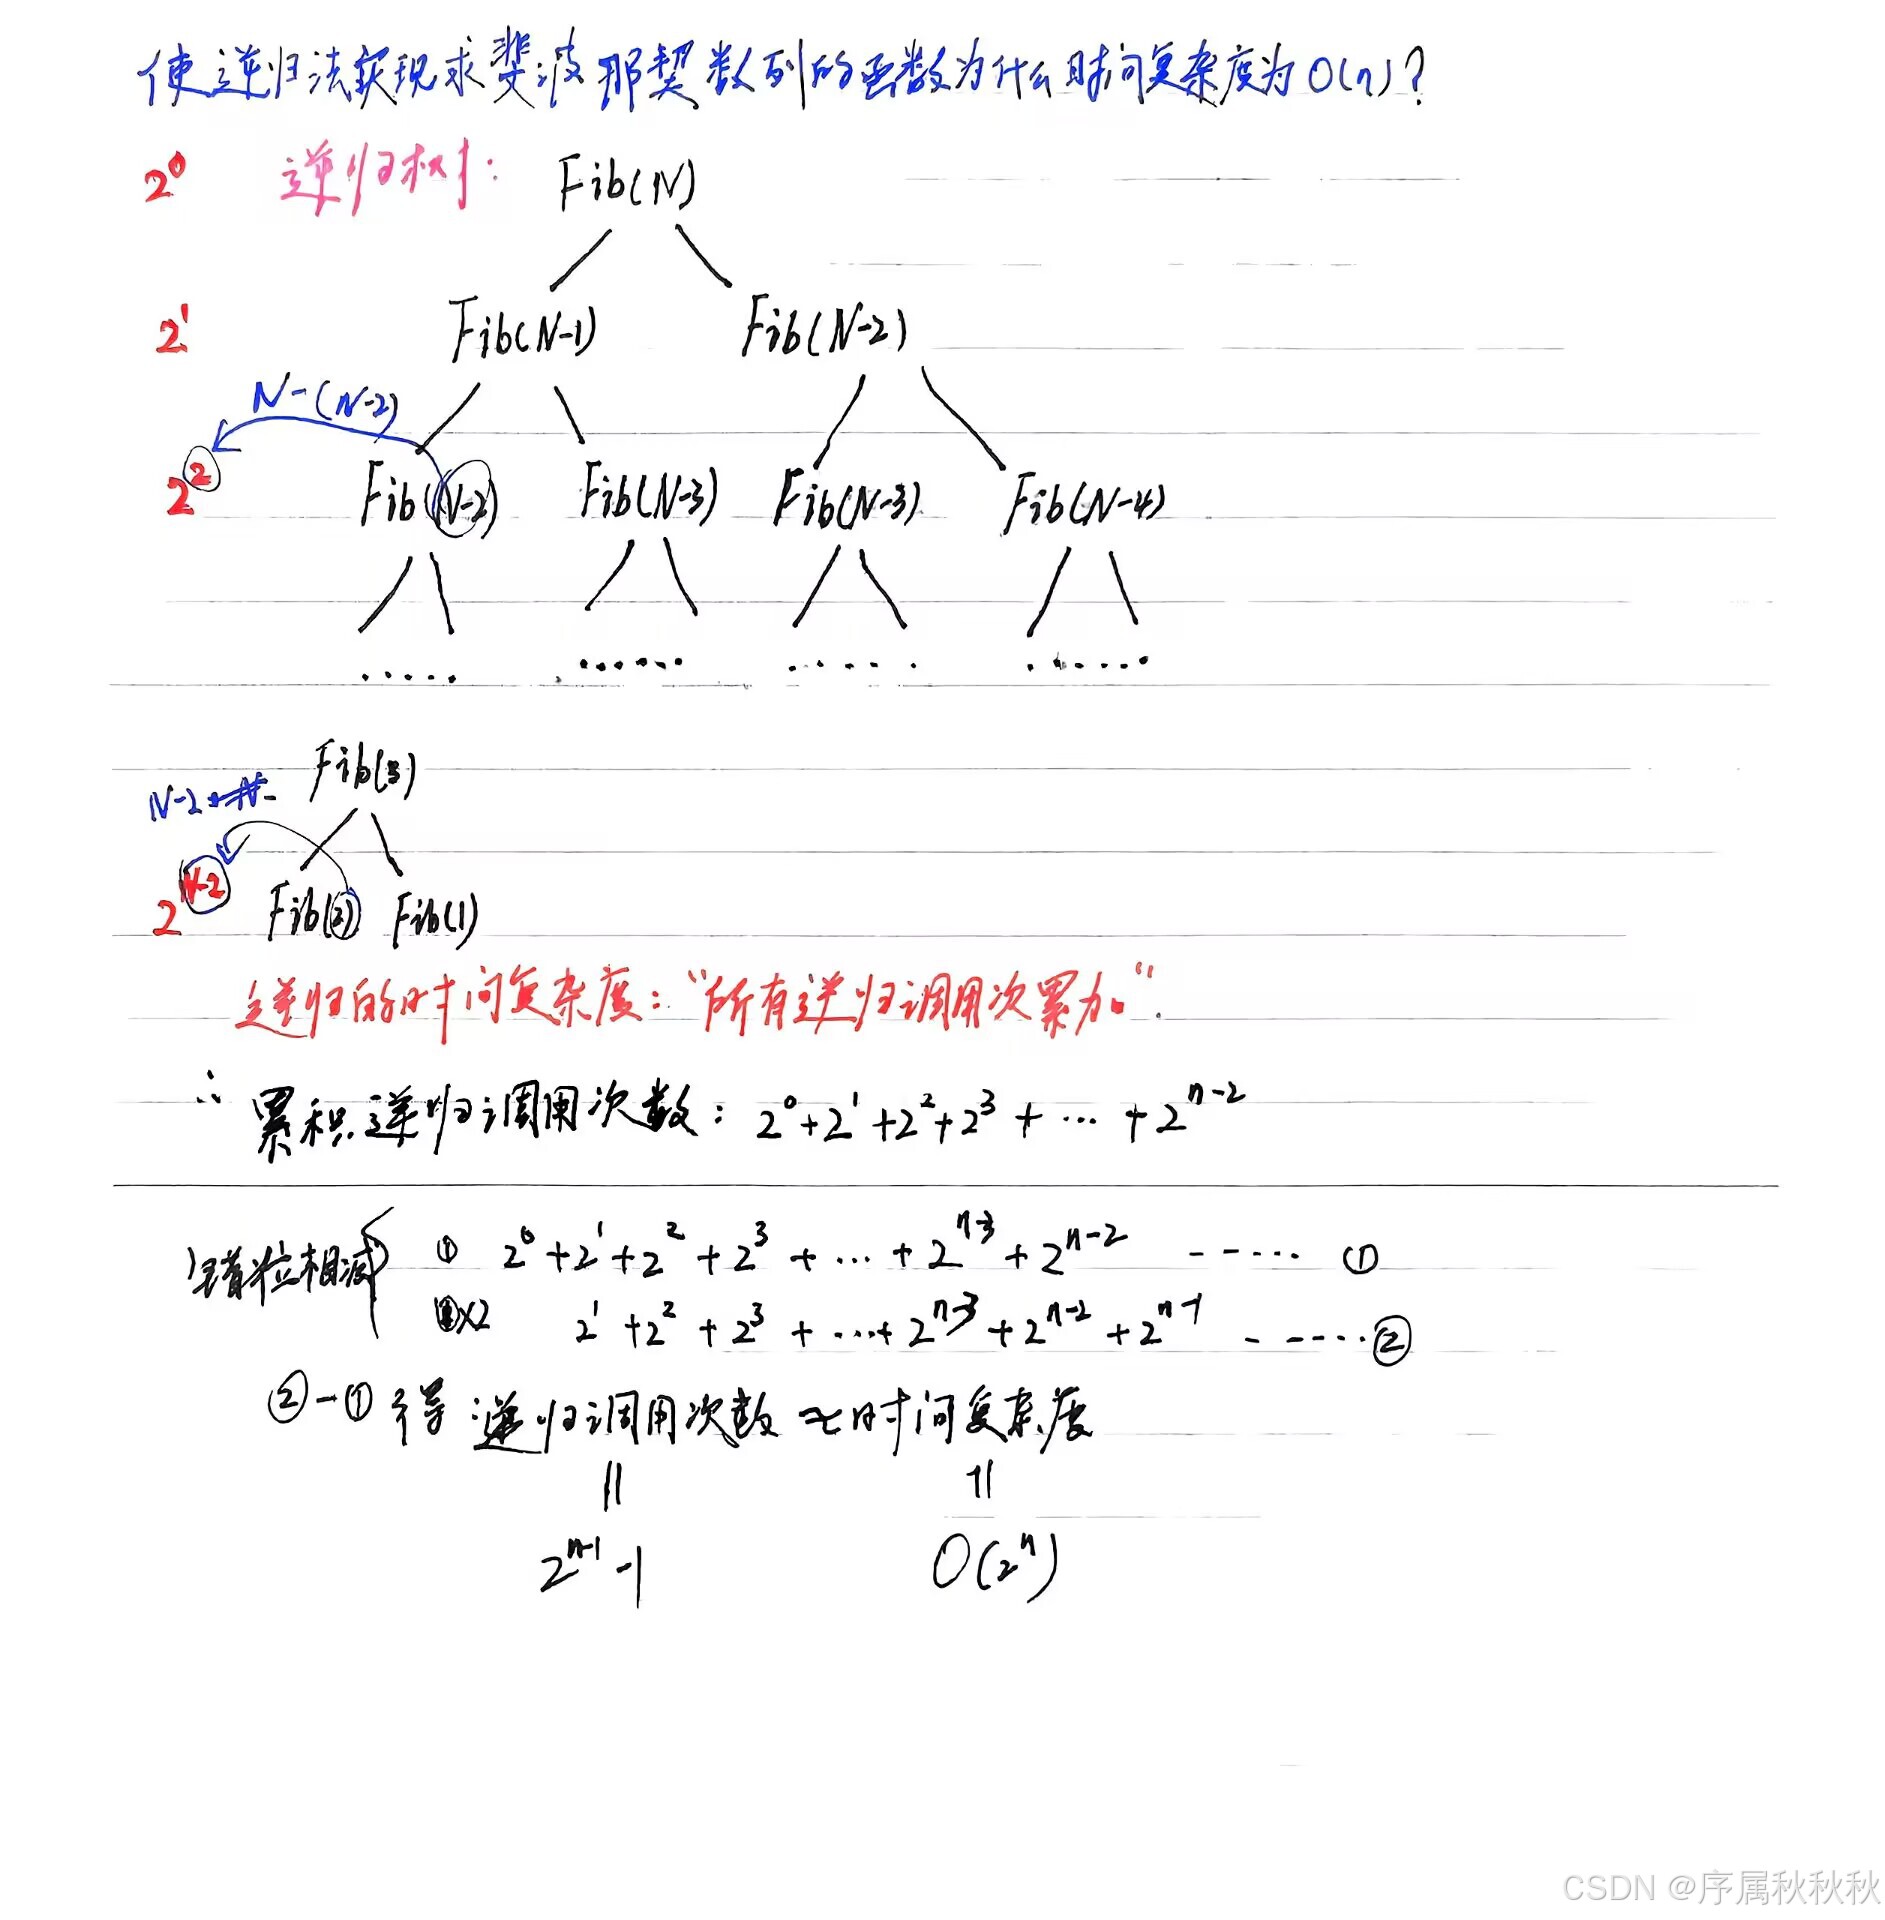 使递归法获现求斐波那契数列的函数为什么时间复杂度为O(n)?
2^0 递归树: Fib(N)
2^1 Fib(N-1) Fib(N-2)
N-(N-2)
2^2 Fib(N-2) Fib(N-3) Fib(N-3) Fib(N-4)
..... ...... ...... ......
Fib(3)
N-2
2^(N-2) Fib(2) Fib(1)
递归的时间复杂度:“所有递归调用次累加”.
∴ 累积递归调用次数: 2^0+2^1+2^2+2^3+…+2^(n-2)
错位相减 ① 2^0+2^1+2^2+2^3+…+2^(n-3)+2^(n-2) ------ ①
①×2 2^1+2^2+2^3+…+2^(n-3)+2^(n-2)+2^(n-1) ------ ②
②-①得:递归调用次数≈时间复杂度
|| ||
2^(n-1)-1 O(2^n)
CSDN @序属秋秋秋